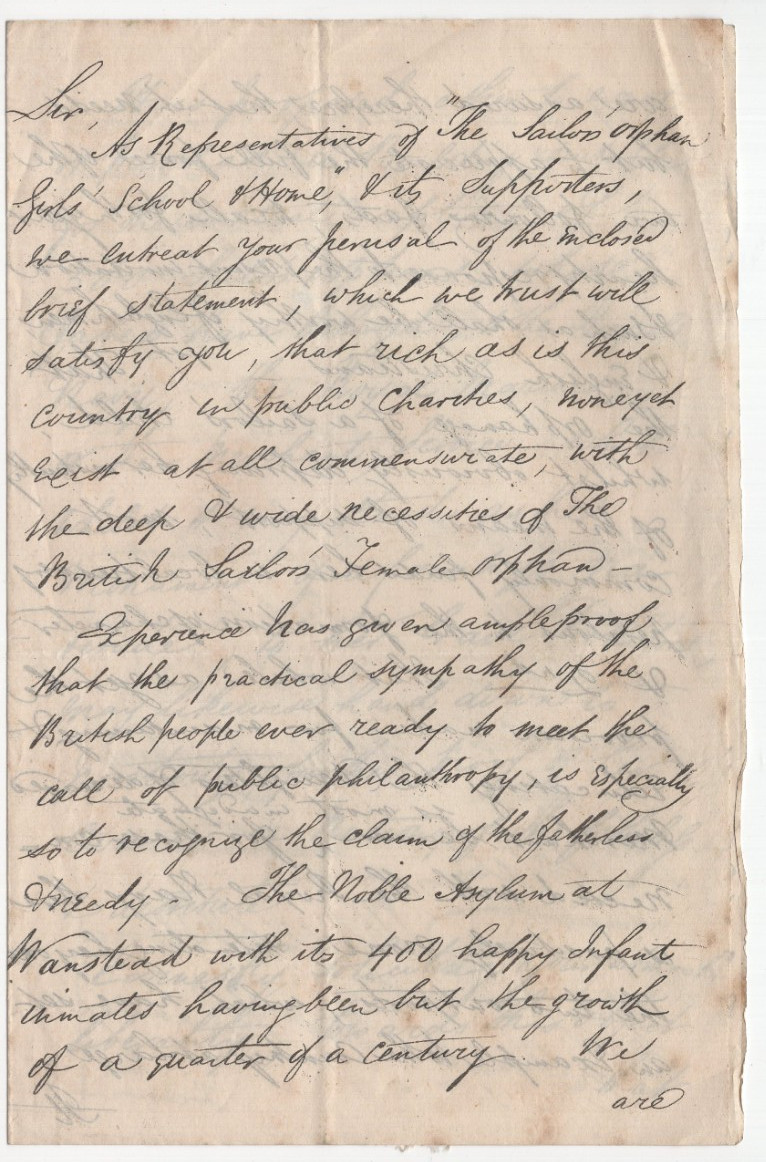 Sir,
As Representatives of "The Sailors' orphan
Girls' School & Home", & its Supporters,
we entreat your perusal of the Enclosed
brief statement, which we trust will
satisfy you, that rich as is this
country in public Charities, none yet
Exist at all commensurate, with
the deep & wide necessities of The
British Sailors' Female orphan –
Experience has given ample proof
that the practical sympathy of the
British people ever ready to meet the
call of public philanthropy, is Especially
so to recognize the claim of the fatherless
& needy – The Noble Asylum at
Wanstead with its 400 happy Infant
inmates having been but the growth
of a quarter of a century. We
are